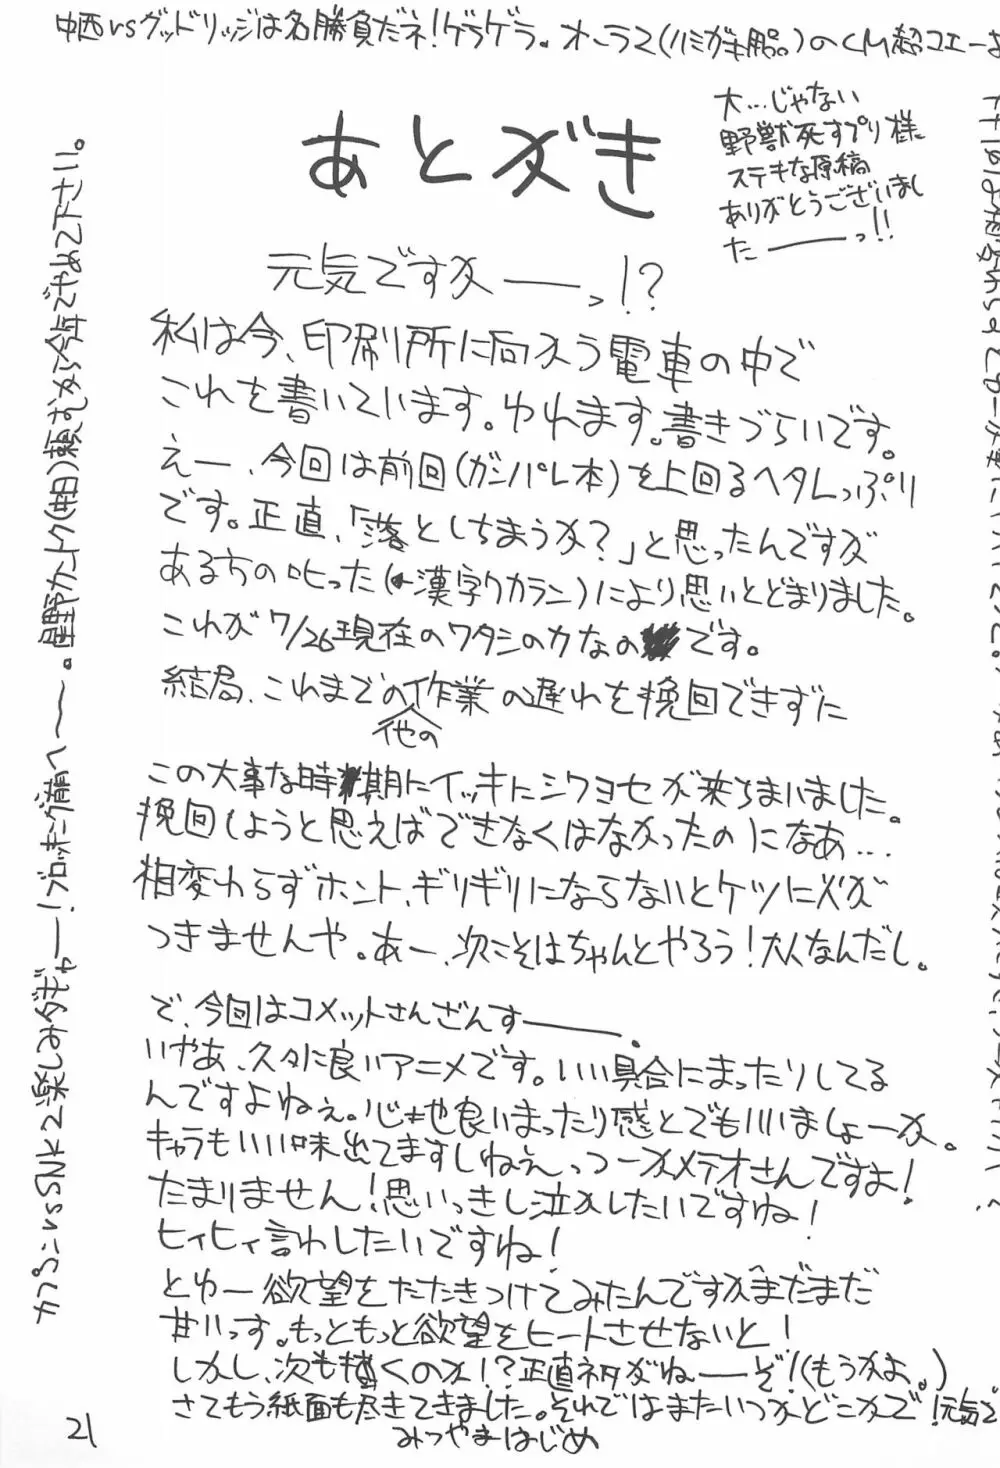 中西vsグッドリッジは名勝負だネ!ゲラゲラ。オーラ2(ハミガキ用品。)のCM超コエーよ
あとがき
大…じゃない
野獣死すプリ様
ステキな原稿
ありがとうございまし
たーーっ!!
元気ですかーーっ!?
私は今、印刷所に向かう電車の中で
これを書いています。ゆれます。書きづらいです。
えー、今回は前回(ガンパレ本)を上回るヘタレっぷり
です。正直、「落としちまうか?」と思ったんですが
ある方の叱った(←漢字ワカラン)により思いとどまりました。
これが7/26現在のワタシのカなのです。
結局、これまでの他の作業の遅れを挽回できずに
この大事な時期にイッキにシワヨセが来ちまいました。
挽回しようと思えばできなくはなかったのになあ…
相変わらずホント、ギリギリにならないとケツに火が
つきませんや。あー、次こそはちゃんとやろう!大人なんだし。
で、今回はコメットさんざんすーーー。
いやあ、久々に良いアニメです。いい具合にまったりしてる
んですよねぇ。心地良いまったり感とでもいいましょーか。
キャラもいい味出てますしねぇっつーかメテオさんですよ!
たまりません!思いっきし泣かしたいですね!
ヒィヒィ言わしたいですね!
とゆー欲望をたたきつけてみたんですがまだまだ
甘いっす。もっともっと欲望をヒートさせないと!
しかし、次も描くのか!?正直ネタがねーーぞ!(もうかよ。)
さてもう紙面も尽きてきました。それではまたいつかどこかで!元気で。
みつやまはじめ
カプコンvsSNK2楽しみダギャー!ブロッキング萌へ〜〜。星野カントク(中日)頼むから今年でやめて下さい。
21